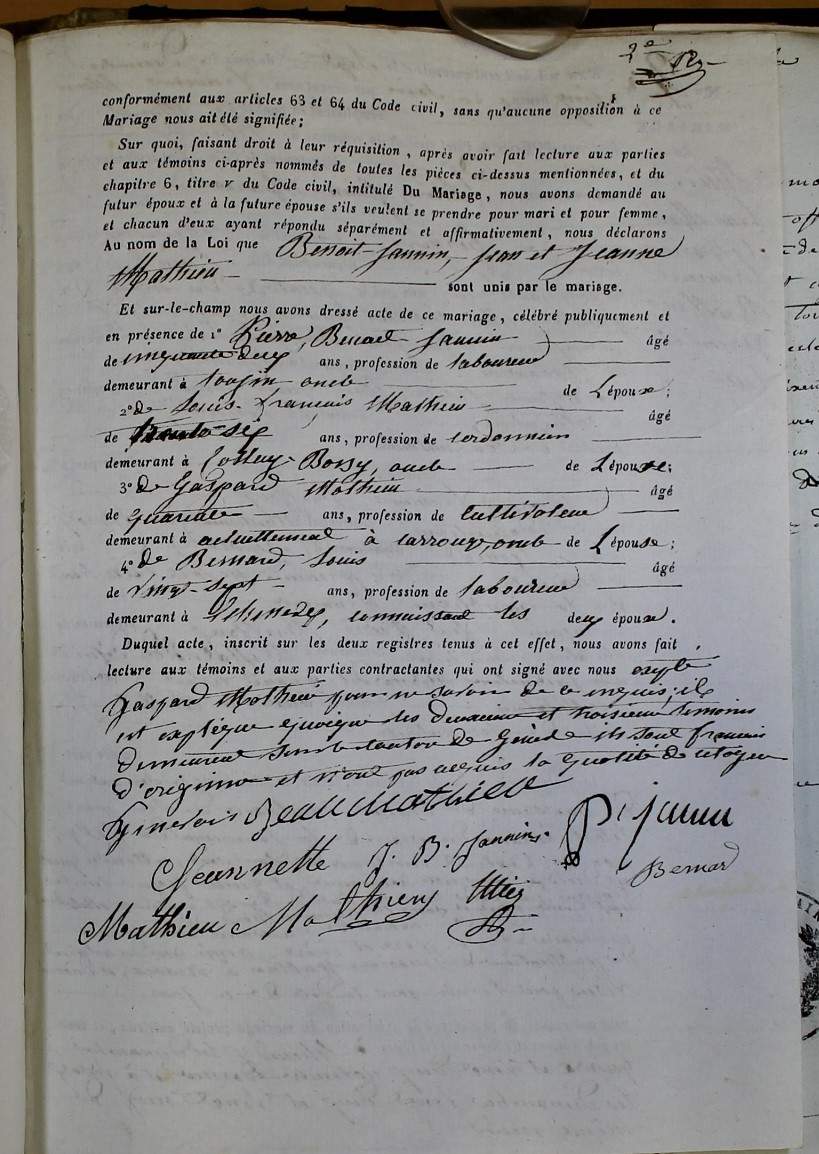 2e
conformément aux articles 63 et 64 du Code civil, sans qu'aucune opposition à ce
Mariage nous ait été signifiée;
Sur quoi, faisant droit à leur réquisition, après avoir fait lecture aux parties
et aux témoins ci-après nommés de toutes les pièces ci-dessus mentionnées, et du
chapitre 6, titre v du Code civil, intitulé Du Mariage, nous avons demandé au
futur époux et à la future épouse s'ils veulent se prendre pour mari et pour femme,
et chacun d'eux ayant répondu séparément et affirmativement, nous déclarons
Au nom de la Loi que Benoit-Jannin, Jean et Jeanne
Mathieu sont unis par le mariage.
Et sur-le-champ nous avons dressé acte de ce mariage, célébré publiquement et
en présence de 1° Pierre, Benoit Jannin âgé
de cinquante deux ans, profession de laboureur
demeurant à oncle de L'épouse;
2° de Louis-François Mathieu âgé
de ans, profession de cordonnier
demeurant à Bossy, oncle de L'épouse;
3° de Gaspard Mathieu âgé
de quarante ans, profession de Cultivateur
demeurant à actuellement à carrouge, oncle de L'épouse;
4° de Bernard, Louis âgé
de vingt-sept ans, profession de laboureur
demeurant à connaissant les deux époux.
Duquel acte, inscrit sur les deux registres tenus à cet effet, nous avons fait
lecture aux témoins et aux parties contractantes qui ont signé avec nous excepté
Gaspard Mathieu pour ne savoir de ce enquis; il
est expliqué que les Deuxieme et troisieme temoins
demeurent sur le canton de Genève ils sont français
d'origine et n'ont pas acquis la qualité de citoyen
Genevois Jean Mathieu
P. Jannin
Jeannette J. B. Jannin
Bernard
Mathieu Mathieu